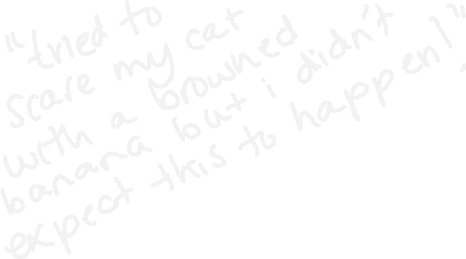 "tried to
scare my cat
with a browned
banana but i didn't
expect this to happen!"